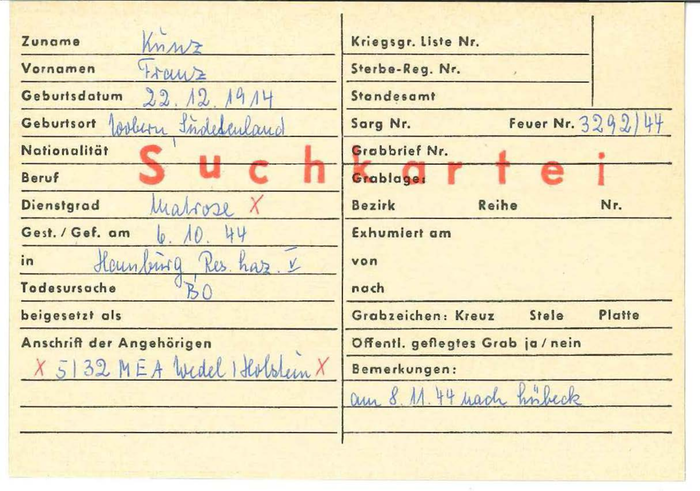 Zuname Kunz
Vornamen Franz
Geburtsdatum 22. 12. 1914
Geburtsort Sudetenland
Nationalität
Beruf
Dienstgrad Matrose X
Gest. / Gef. am 6. 10. 44
in Hamburg, Res. Laz. V
Todesursache BO
beigesetzt als
Anschrift der Angehörigen
X 5132 MEA Wedel / Holstein X
Suchkartei
Kriegsgr. Liste Nr.
Sterbe-Reg. Nr.
Standesamt
Sarg Nr. Feuer Nr. 3292/44
Grabbrief Nr.
Grablage:
Bezirk Reihe Nr.
Exhumiert am
von
nach
Grabzeichen: Kreuz Stele Platte
Öffentl. gepflegtes Grab ja / nein
Bemerkungen:
am 8. 11. 44 nach Lübeck